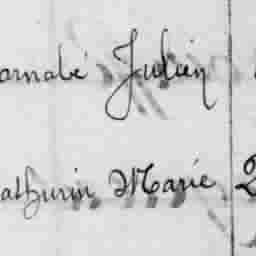 arnabé Julien
athurin Marie